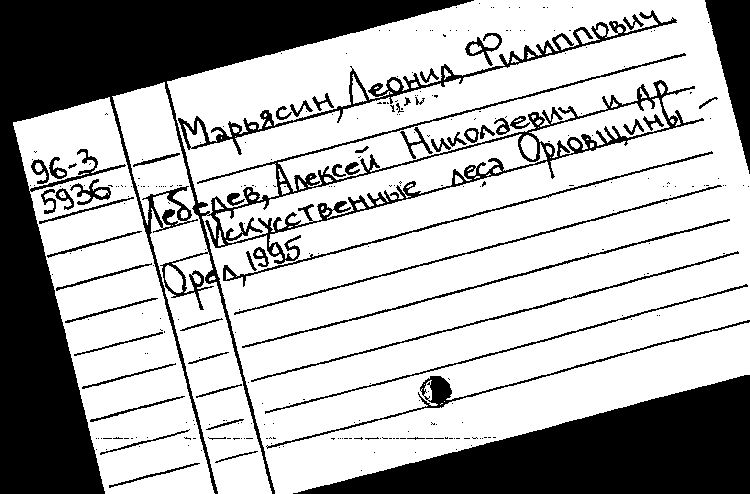 Марьясин, Леонид Филиппович
96-3
5936
Лебедев, Алексей Николаевич и др
Искусственные леса Орловщины –
Орел, 1995.